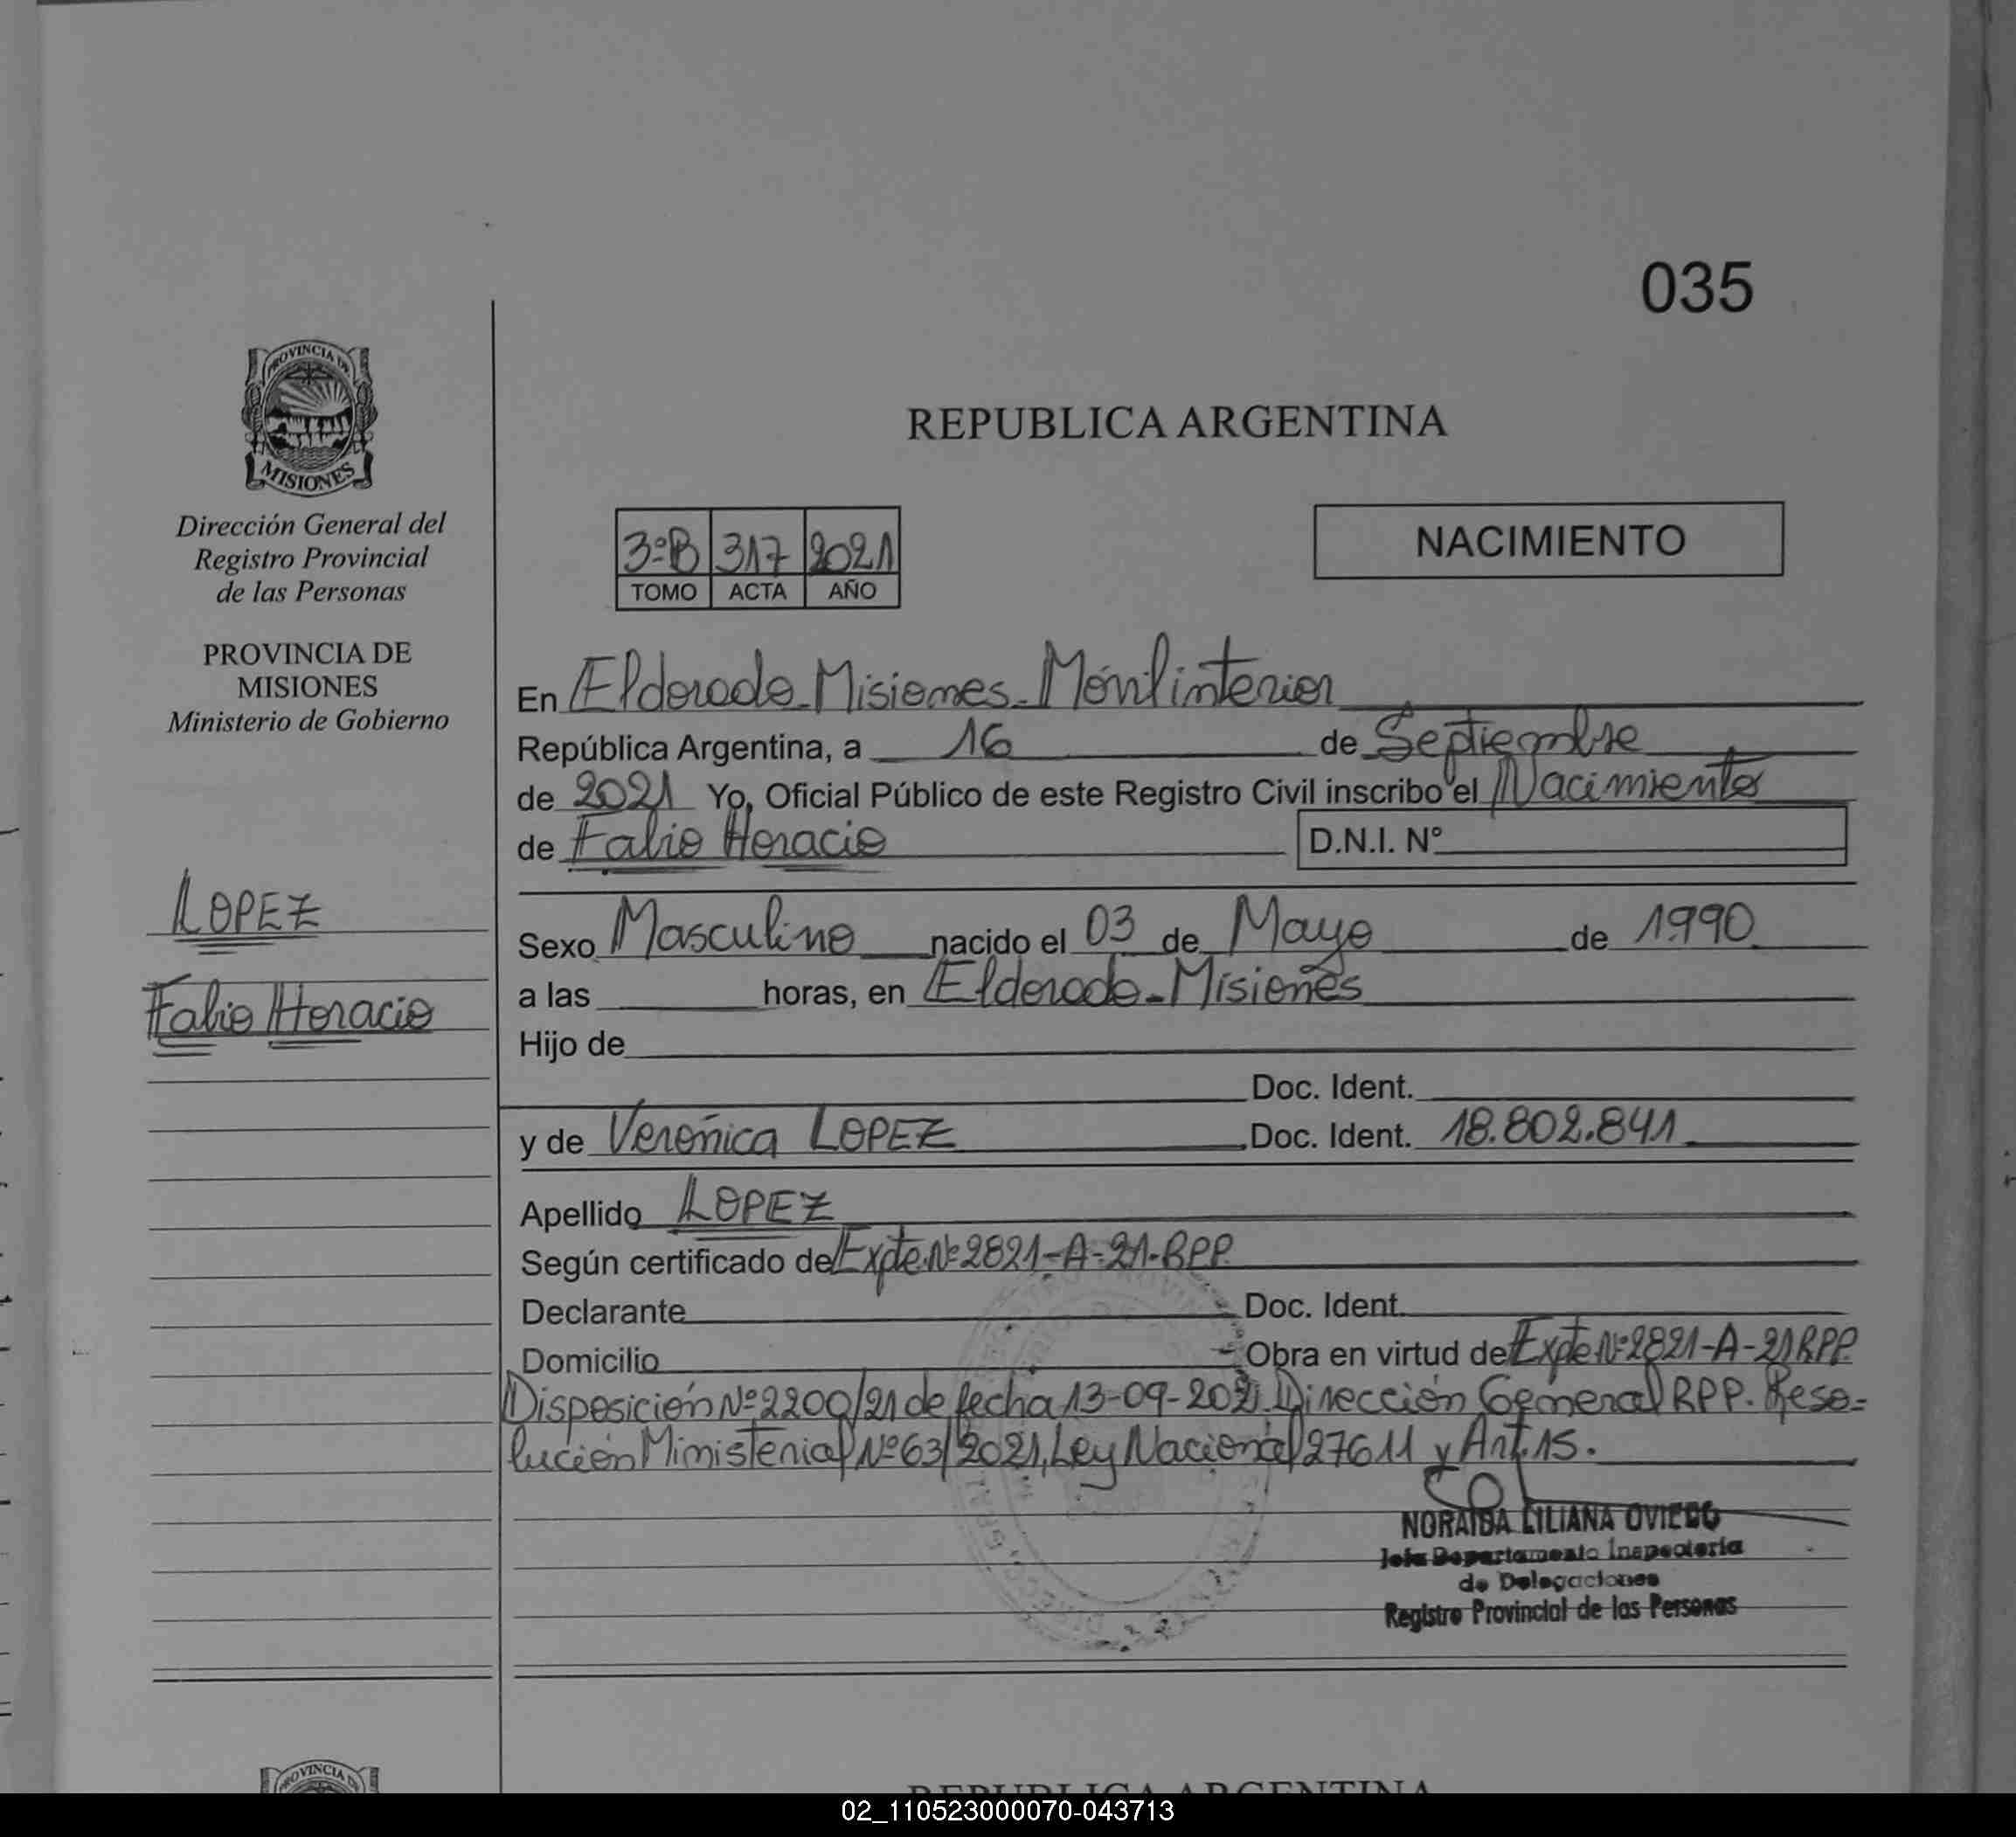 035
PROVINCIA DE
MISIONES
Dirección General del
Registro Provincial
de las Personas
PROVINCIA DE
MISIONES
Ministerio de Gobierno
LOPEZ
Fabio Horacio
REPUBLICA ARGENTINA
3ºB 317 2021
TOMO ACTA AÑO
NACIMIENTO
En Eldorado-Misiones-Móvil interior
República Argentina, a 16 de Septiembre
de 2021 Yo, Oficial Público de este Registro Civil inscribo el Nacimiento
de Fabio Horacio D.N.I. Nº
Sexo Masculino nacido el 03 de Mayo de 1.990
a las horas, en Eldorado-Misiones
Hijo de
Doc. Ident.
y de Verónica LOPEZ Doc. Ident. 18.802.841
Apellido LOPEZ
Según certificado de Expte.Nº2821-A-21-RPP.
Declarante Doc. Ident.
Domicilio Obra en virtud de Expte.Nº2821-A-21RPP.
Disposición Nº2200/21 de fecha 13-09-2021 Dirección General RPP. Reso-
lución Ministerial Nº63/2021, Ley Nacional 27611 y Art.15.
NORAIDA LILIANA OVIEDO
Jefa Departamento Inspectoría
de Delegaciones
Registro Provincial de las Personas
PROVINCIA DE
REPUBLICA ARGENTINA
02_110523000070-043713